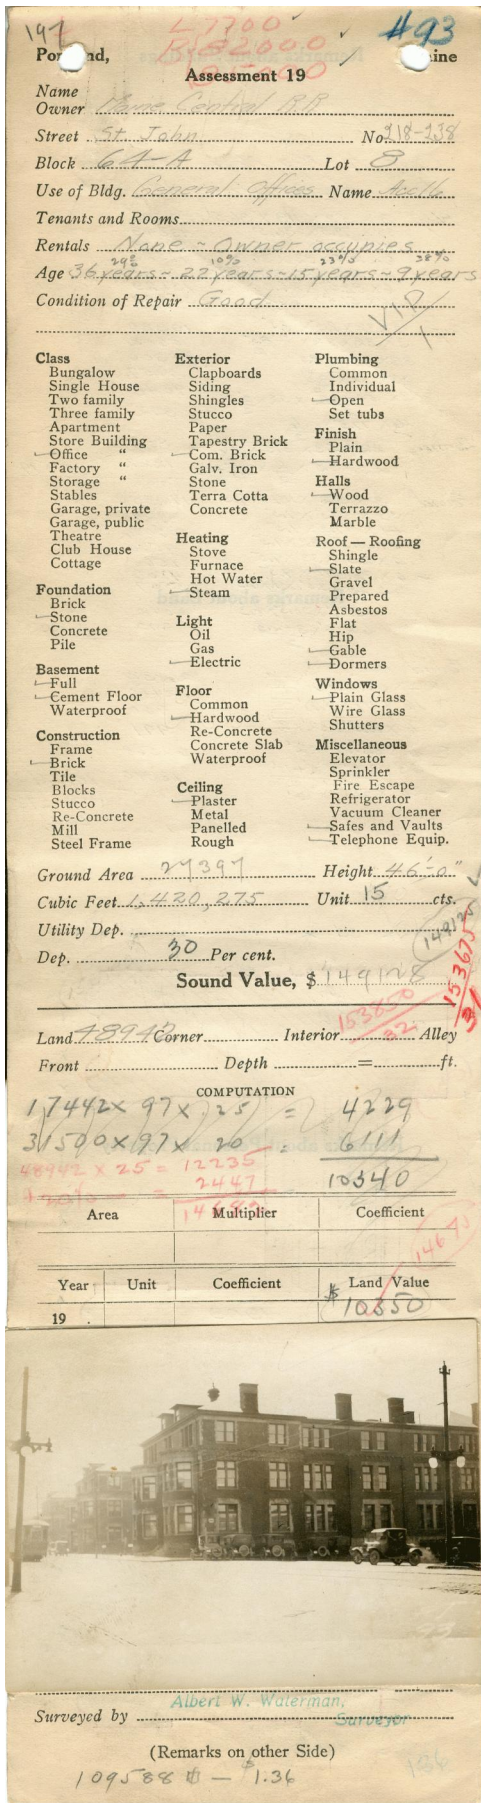 L 7700
#93
B 82000
Portland, Maine
Assessment 19
Name
Owner Maine Central R.R.
Street St. John No. 218-238
Block 64-A Lot 8
Use of Bldg. General Offices Name
Tenants and Rooms
Rentals None - Owner occupies
29% 10% 23% 38%
Age 36 years - 22 years - 15 years - 9 years
Condition of Repair Good
Class
Bungalow
Single House
Two family
Three family
Apartment
Store Building
Office "
Factory "
Storage "
Stables
Garage, private
Garage, public
Theatre
Club House
Cottage
Foundation
Brick
Stone
Concrete
Pile
Basement
Full
Cement Floor
Waterproof
Construction
Frame
Brick
Tile
Blocks
Stucco
Re-Concrete
Mill
Steel Frame
Exterior
Clapboards
Siding
Shingles
Stucco
Paper
Tapestry Brick
Com. Brick
Galv. Iron
Stone
Terra Cotta
Concrete
Heating
Stove
Furnace
Hot Water
Steam
Light
Oil
Gas
Electric
Floor
Common
Hardwood
Re-Concrete
Concrete Slab
Waterproof
Ceiling
Plaster
Metal
Panelled
Rough
Plumbing
Common
Individual
Open
Set tubs
Finish
Plain
Hardwood
Halls
Wood
Terrazzo
Marble
Roof — Roofing
Shingle
Slate
Gravel
Prepared
Asbestos
Flat
Hip
Gable
Dormers
Windows
Plain Glass
Wire Glass
Shutters
Miscellaneous
Elevator
Sprinkler
Fire Escape
Refrigerator
Vacuum Cleaner
Safes and Vaults
Telephone Equip.
Ground Area 27397 Height 46'-0"
Cubic Feet 1,420,275 Unit 15 cts.
Utility Dep. 149125
Dep. 30 Per cent.
153675
31
Sound Value, $ 149128
153850
32
Land 48942 Corner Interior Alley
Front Depth = ft.
COMPUTATION
17442 x 97 x 25 = 4229
31500 x 97 x 20 = 6111
48942 x 25 = 12235
10340
+20% = 2447
14682
Area Multiplier Coefficient
14675
Year Unit Coefficient Land Value
19 $ 10350
Surveyed by Albert W. Waterman,
Surveyor
(Remarks on other Side)
109588 - $1.36
136